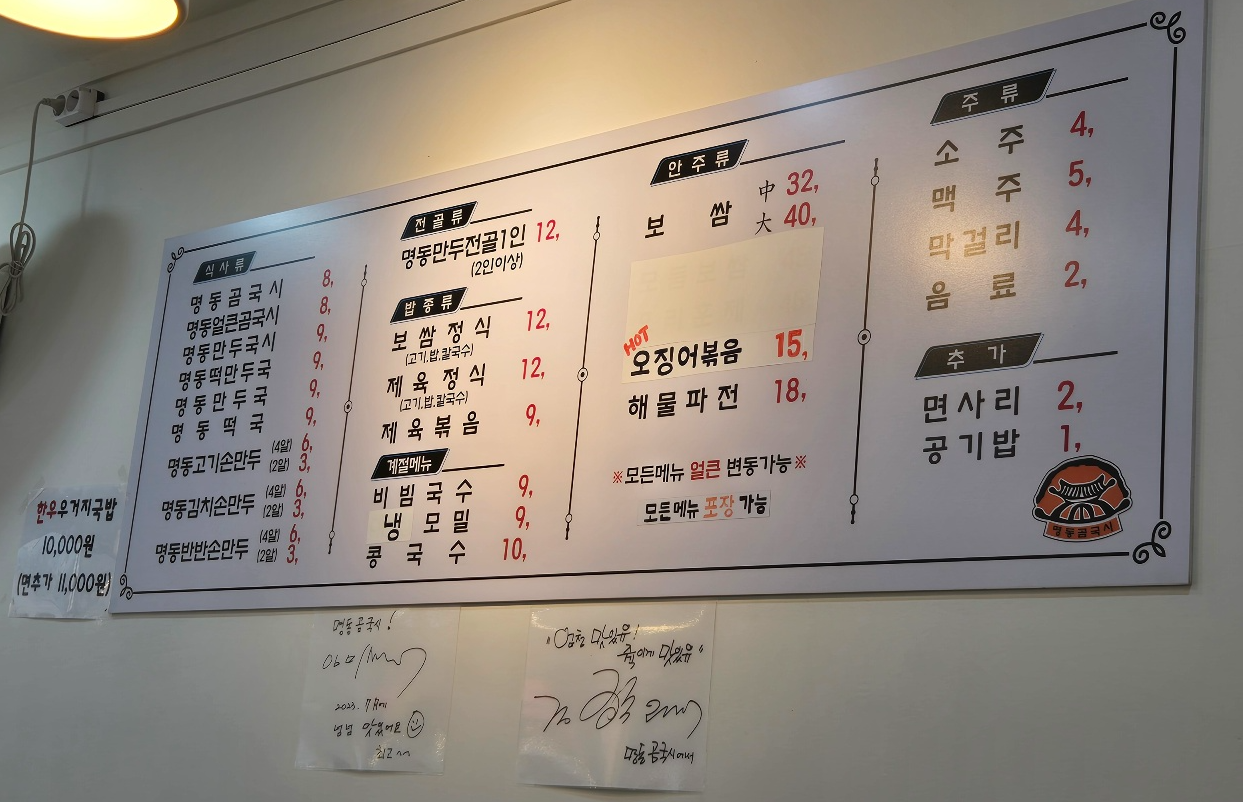 식사류
명동곰국시 8,
명동얼큰곰국시 8,
명동만두국시 9,
명동떡만두국 9,
명동만두국 9,
명동떡국 9,
명동고기손만두 (4알) 6,
(2알) 3,
명동김치손만두 (4알) 6,
(2알) 3,
명동반반손만두 (4알) 6,
(2알) 3,
전골류
명동만두전골1인 12,
(2인이상)
밥종류
보쌈정식 12,
(고기,밥,칼국수)
제육정식 12,
(고기,밥,칼국수)
제육볶음 9,
계절메뉴
비빔국수 9,
냉모밀 9,
콩국수 10,
안주류
보쌈 中 32,
大 40,
HOT
오징어볶음 15,
해물파전 18,
※모든메뉴 얼큰 변동가능※
모든메뉴 포장 가능
주류
소주 4,
맥주 5,
막걸리 4,
음료 2,
추가
면사리 2,
공기밥 1,
명동곰국시
한우우거지국밥
10,000원
(면추가 11,000원)
명동곰국시!
2023. 7월에
냠냠 맛있어요
최고~~
"엄청 맛있유!
죽이게 맛있유"
명동곰국시에서